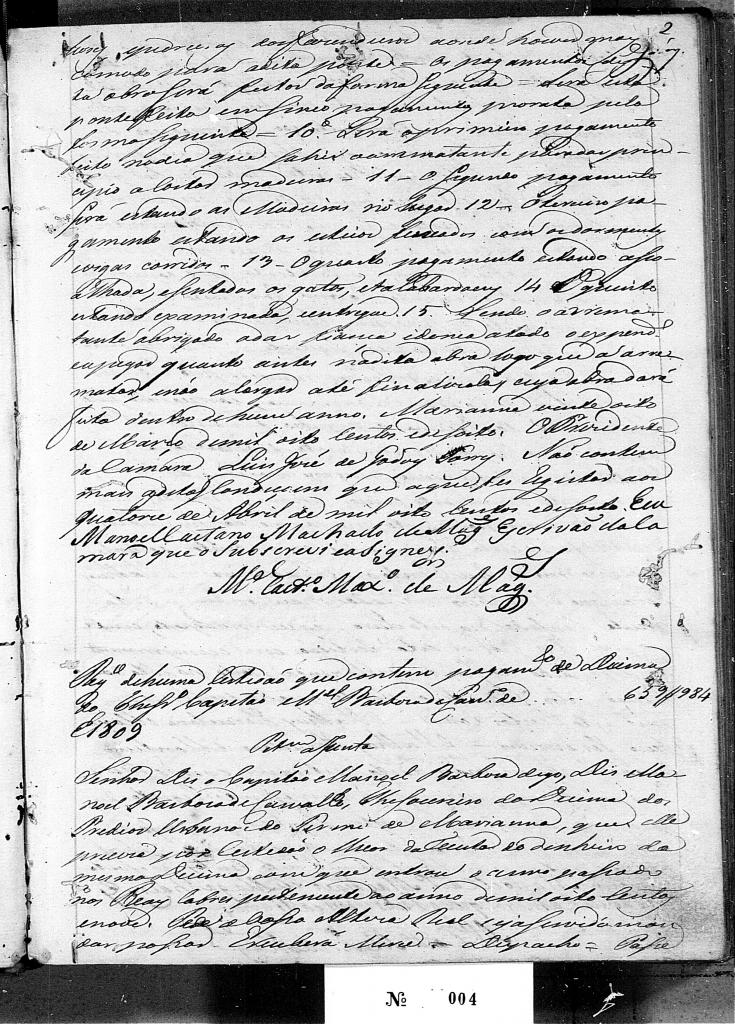 2
comodo para a dita ponte = Os pagamentos des
ta obra será feitos da forma seguinte = Será esta
ponte feita em Sinco pagamentos pro rata pela
forma seguinte = 10º Será o primeiro pagamento
feito no dia que sahir o arrematante para dar prin
cipio a Cortar madeiras - 11 - O Segundo pagamento
Será estando as Madeiras no lugar 12 - O terceiro pa-
gamento estando os esteios fincados com os dormentes
vigas corridas - 13 - O quarto pagamento estando asso-
alhada, e Sentados os gatos, e atabardoens 14 O quinto
estando examinada, e entregue. 15. Sendo o arrema-
tante obrigado a dar fiança
quanto antes na dita obra logo que a arre-
matar, e não alargar até finalizala, cuja obra dará
feita dentro de hum anno. Marianna vinte oito
de Março de mil oito Centos e desoito. O Prezidente
da Camara Luis José de Godoy Torres. Não contem
mais as ditas Condiçoens que aqui fes registar aos
quatorze de Abril de mil oito Centos e desoito. Eu
Manoel Caetano Machado de Mag.es Escrivão da Ca
mara que o Subscrevi e asignei.
M.el Caet.o Max.o de Mag.es
Reg.o de huma Certidão que contem pagam.to de Decima
do Thez.o Capitão M.el Barboza de Carv.o de ... 659//984
E 1809
Pet.am asenta
Senhor Dis o Capitão Manoel Barboza digo, Dis Ma-
noel Barboza de Carvalho, Thesoureiro da Decima dos
Predios Urbanos do Termo de Marianna, que elle
preciza por Certidão o theor da Conta do dinheiro da
mesma Decima com que entrou o anno passado
nos Reaes Cofres pertencente ao anno de mil oito Centos
e nove. Pede a Vossa Alteza Real seja servido man
dar passar. E receberá Merce = Despacho = Passe
Nº 004